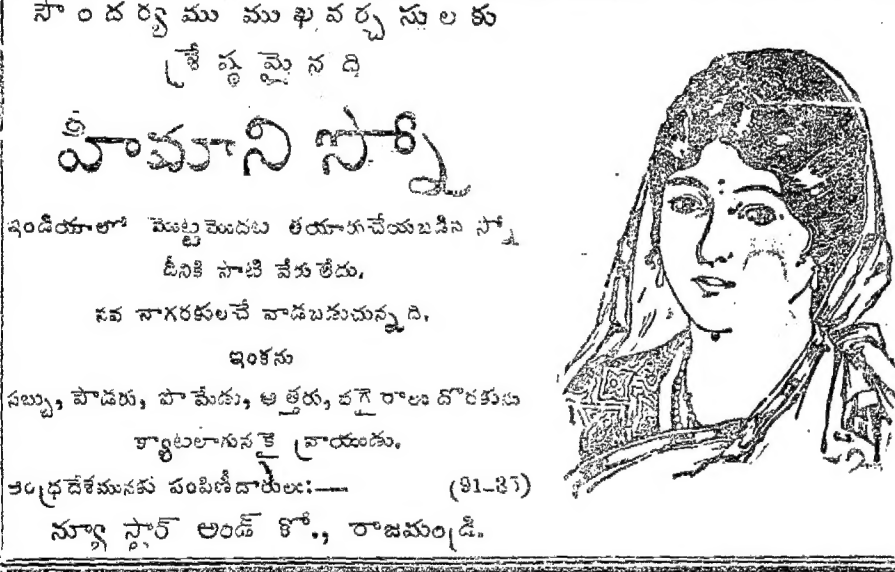 సౌందర్యము ముఖవర్చస్సులకు
శ్రేష్ఠమైనది
హిమాని స్నో
ఇండియాలో మొట్టమొదట తయారుచేయబడిన స్నో
దీనికి సాటి వేరులేదు.
నవ నాగరకులచే వాడబడుచున్నది.
ఇంకను
సబ్బు, పౌడరు, పొమేడు, అత్తరు, వగైరాలు దొరకును
క్యాటలాగునకై వ్రాయుడు.
ఆంధ్రదేశమునకు పంపిణీదారులు:—
న్యూ స్టార్ అండ్ కో., రాజమండ్రి.